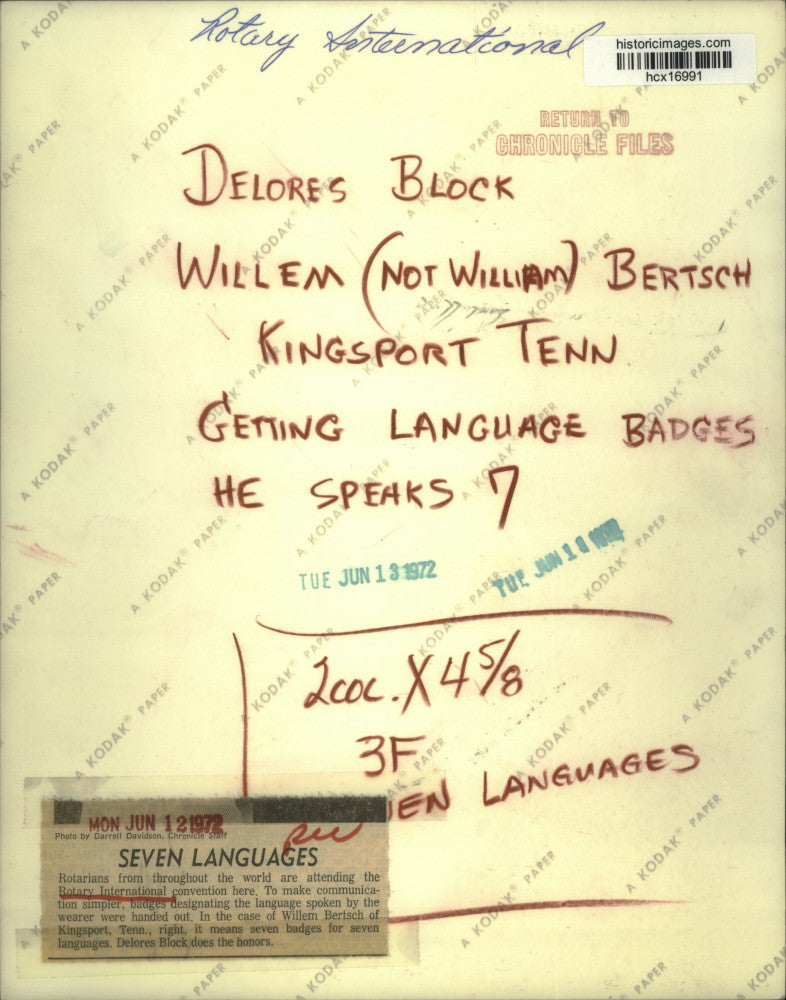 Rotary International
historicimages.com
hcx16991
RETURN TO
CHRONICLE FILES
DELORES BLOCK
WILLEM (NOT WILLIAM) BERTSCH
KINGSPORT TENN
GETTING LANGUAGE BADGES
HE SPEAKS 7
TUE JUN 13 1972
TUE JUN 1
2COL. X 4 5/8
3F
EN LANGUAGES
MON JUN 12 1972
Photo by Darrell Davidson, Chronicle Staff
SEVEN LANGUAGES
Rotarians from throughout the world are attending the
Rotary International convention here. To make communica-
tion simpler, badges designating the language spoken by the
wearer were handed out. In the case of Willem Bertsch of
Kingsport, Tenn., right, it means seven badges for seven
languages. Delores Block does the honors.
A KODAK® PAPER